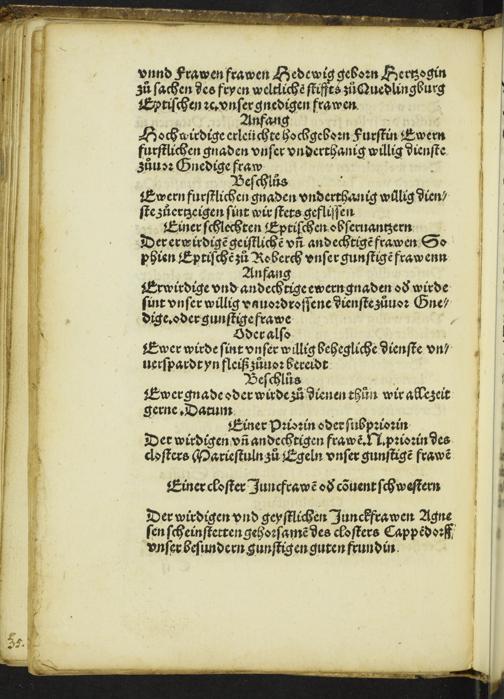 vnnd Frawen frawen Hedewig geborn Hertzogin
zů sachen des fryen weltlichē stiffts zů Quedlingburg
Eptischen ꝛc. vnser gnedigen frawen.
Anfang
Hochwirdige erleůchte hochgeborn Furstin Ewern
furstlichen gnaden vnser vnderthanig willig dienste
zůuor Gnedige fraw
Beschlůs
Ewern furstlichen gnaden vnderthanig willig dien/
ste zůertzeigen sint wir stets geflissen
Einer schlechten Eptischen obseruantzern
Der erwirdigē geistlichē vn̄ andechtigē frawen So
phien Eptischē zů Roberch vnser gunstigē frawenn
Anfang
Erwirdige vnd andechtige ewern gnaden od̄ wirde
sint vnser willig vnuordrossene dienste zůuor Gne/
dige. oder gunstige frawe
Oder also
Ewer wirde sint vnser willig behegliche dienste vn/
uerspardt yn fleiß zůuor bereidt
Beschlůs
Ewer gnade oder wirde zů dienen thůn wir allezeit
gerne. Datum
Einer Priorin oder subpriorin
Der wirdigen vn̄ andechtigen frawē. N. priorin des
closters Mariestuln zů Egeln vnser gunstigē frawē
Einer closter Juncfrawē od̄ cōuent schwestern
Der wirdigen vnd geystlichen Junckfrawen Agne
sen scheinstetten gehorsamē des closters Cappēdorff
vnser besundern gunstigen guten frundin.
35.